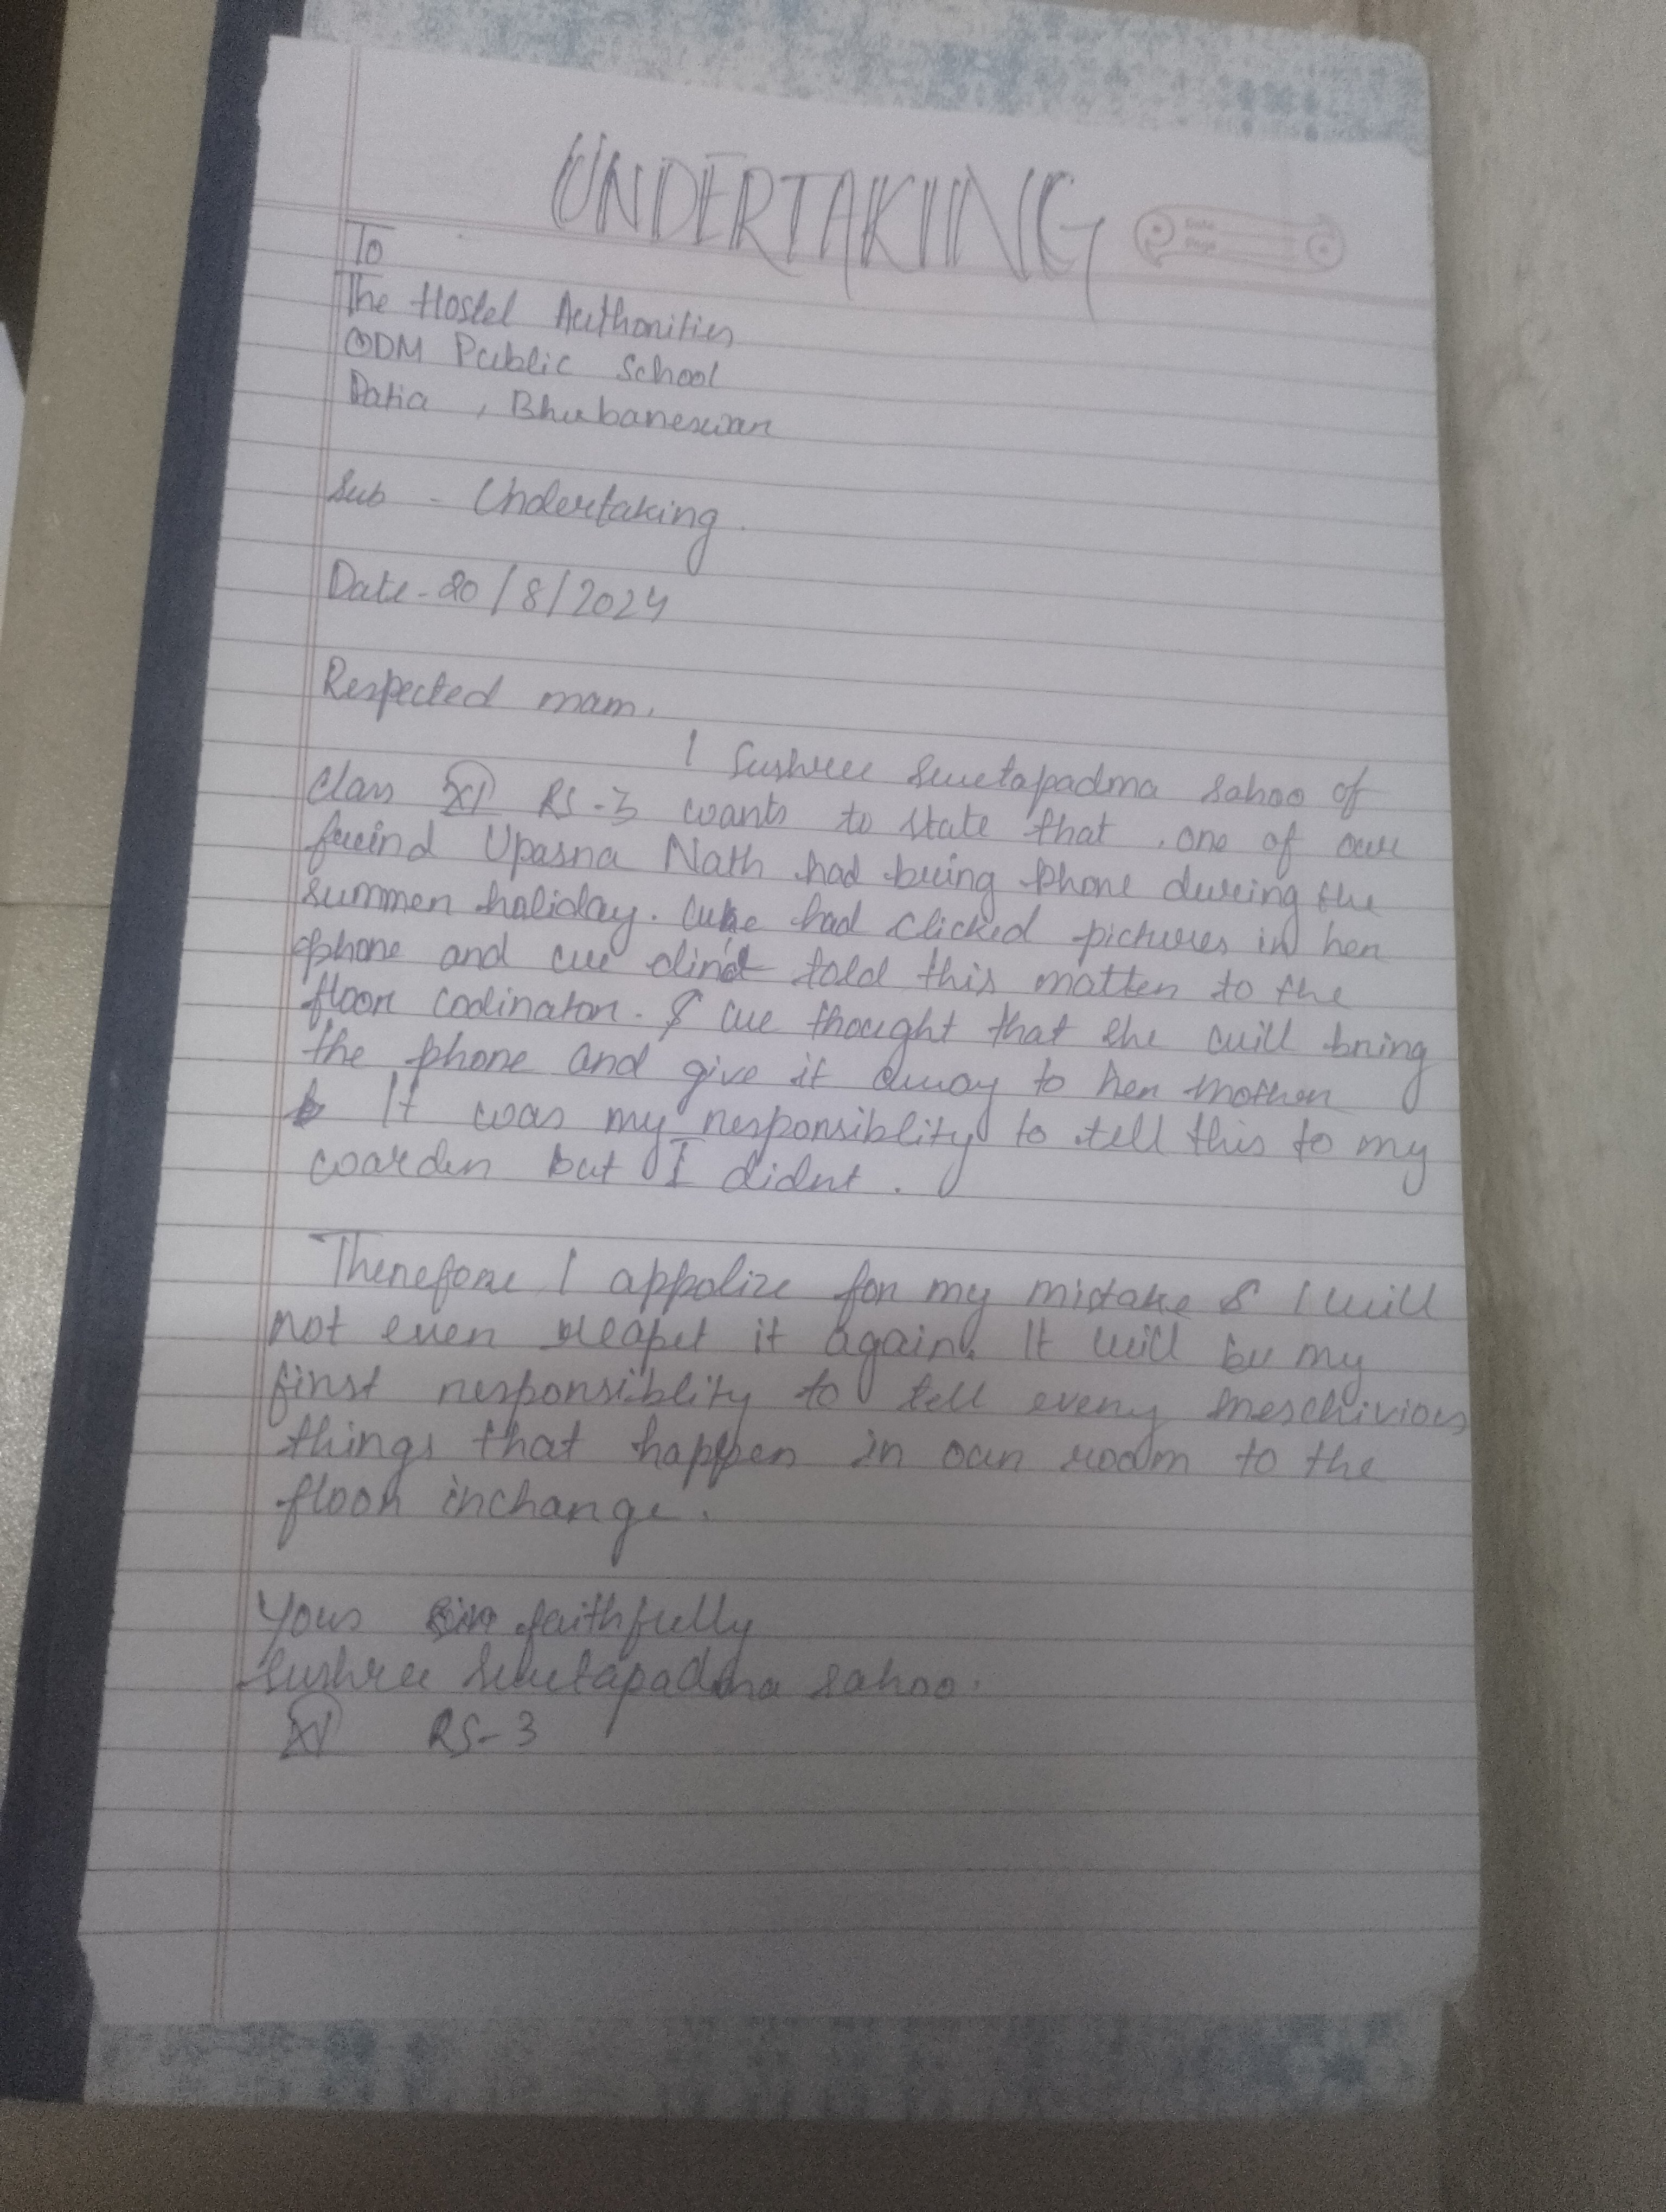 UNDERTAKING
Date
Page
To
The Hostel Authorities
ODM Public School
Patia , Bhubaneswar
Sub - Undertaking.
Date - 20/8/2024
Respected mam,
I Sushree Swetapadma Sahoo of
class XI RS-3 wants to state that , one of our
freind Upasna Nath had bring phone during the
summer holiday. We had clicked pictures in her
phone and we dind't told this matter to the
floor codinator. & we thought that she will bring
the phone and give it away to her mother
It was my responsiblity to tell this to my
warden but I didnt .
Therefore I appolize for my mistake & I will
not even reapet it again. It will be my
first responsiblity to tell every meschivious
things that happen in our room to the
floor incharge.
Yous faithfully
Sushree Swetapadma Sahoo.
XI RS-3